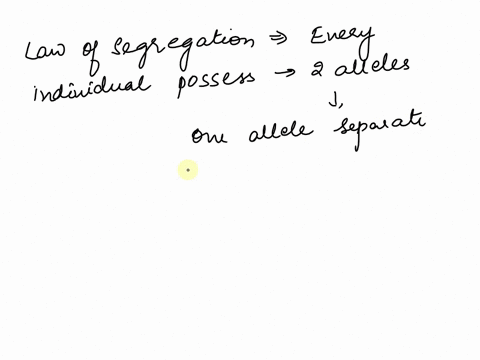 Law of segregation ⇒ Every
individual possess → 2 alleles
↓
one allele separate